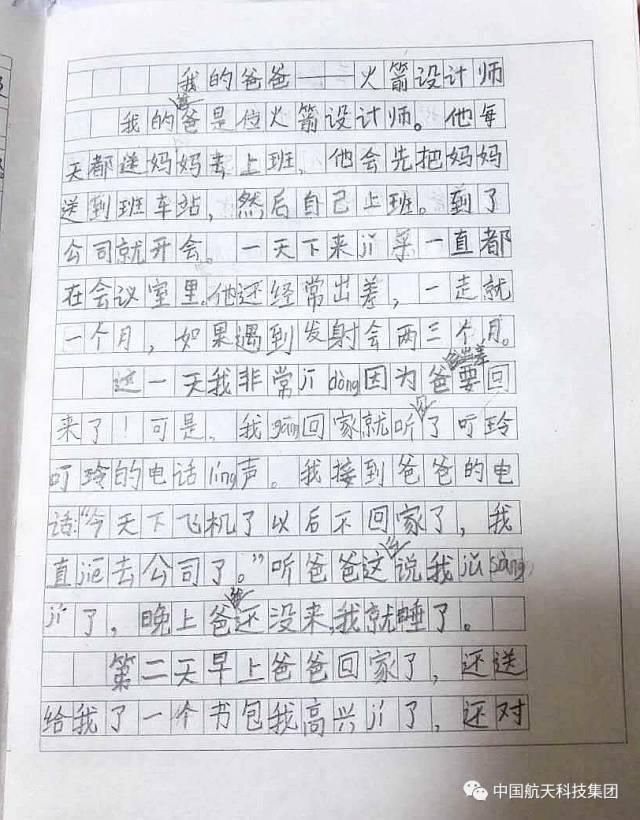 我的爸爸——火箭设计师
我的爸爸是位火箭设计师。他每
天都送妈妈去上班，他会先把妈妈
送到班车站，然后自己上班。到了
公司就开会。一天下来jǐ乎一直都
在会议室里.他还经常出差，一走就
一个月，如果遇到发射会两三个月。
这一天我非常jī dòng因为爸爸出差要回
来了！可是，我gāng回家就听见了叮玲
叮玲的电话líng声。我接到爸爸的电
话:“今天下飞机了以后不回家了，我
直jiē去公司了。”听爸爸这么说我jǔ sàng
jí了，晚上爸爸还没来,我就睡了。
第二天早上爸爸回家了，还送
给我了一个书包我高兴jí了，还对
中国航天科技集团